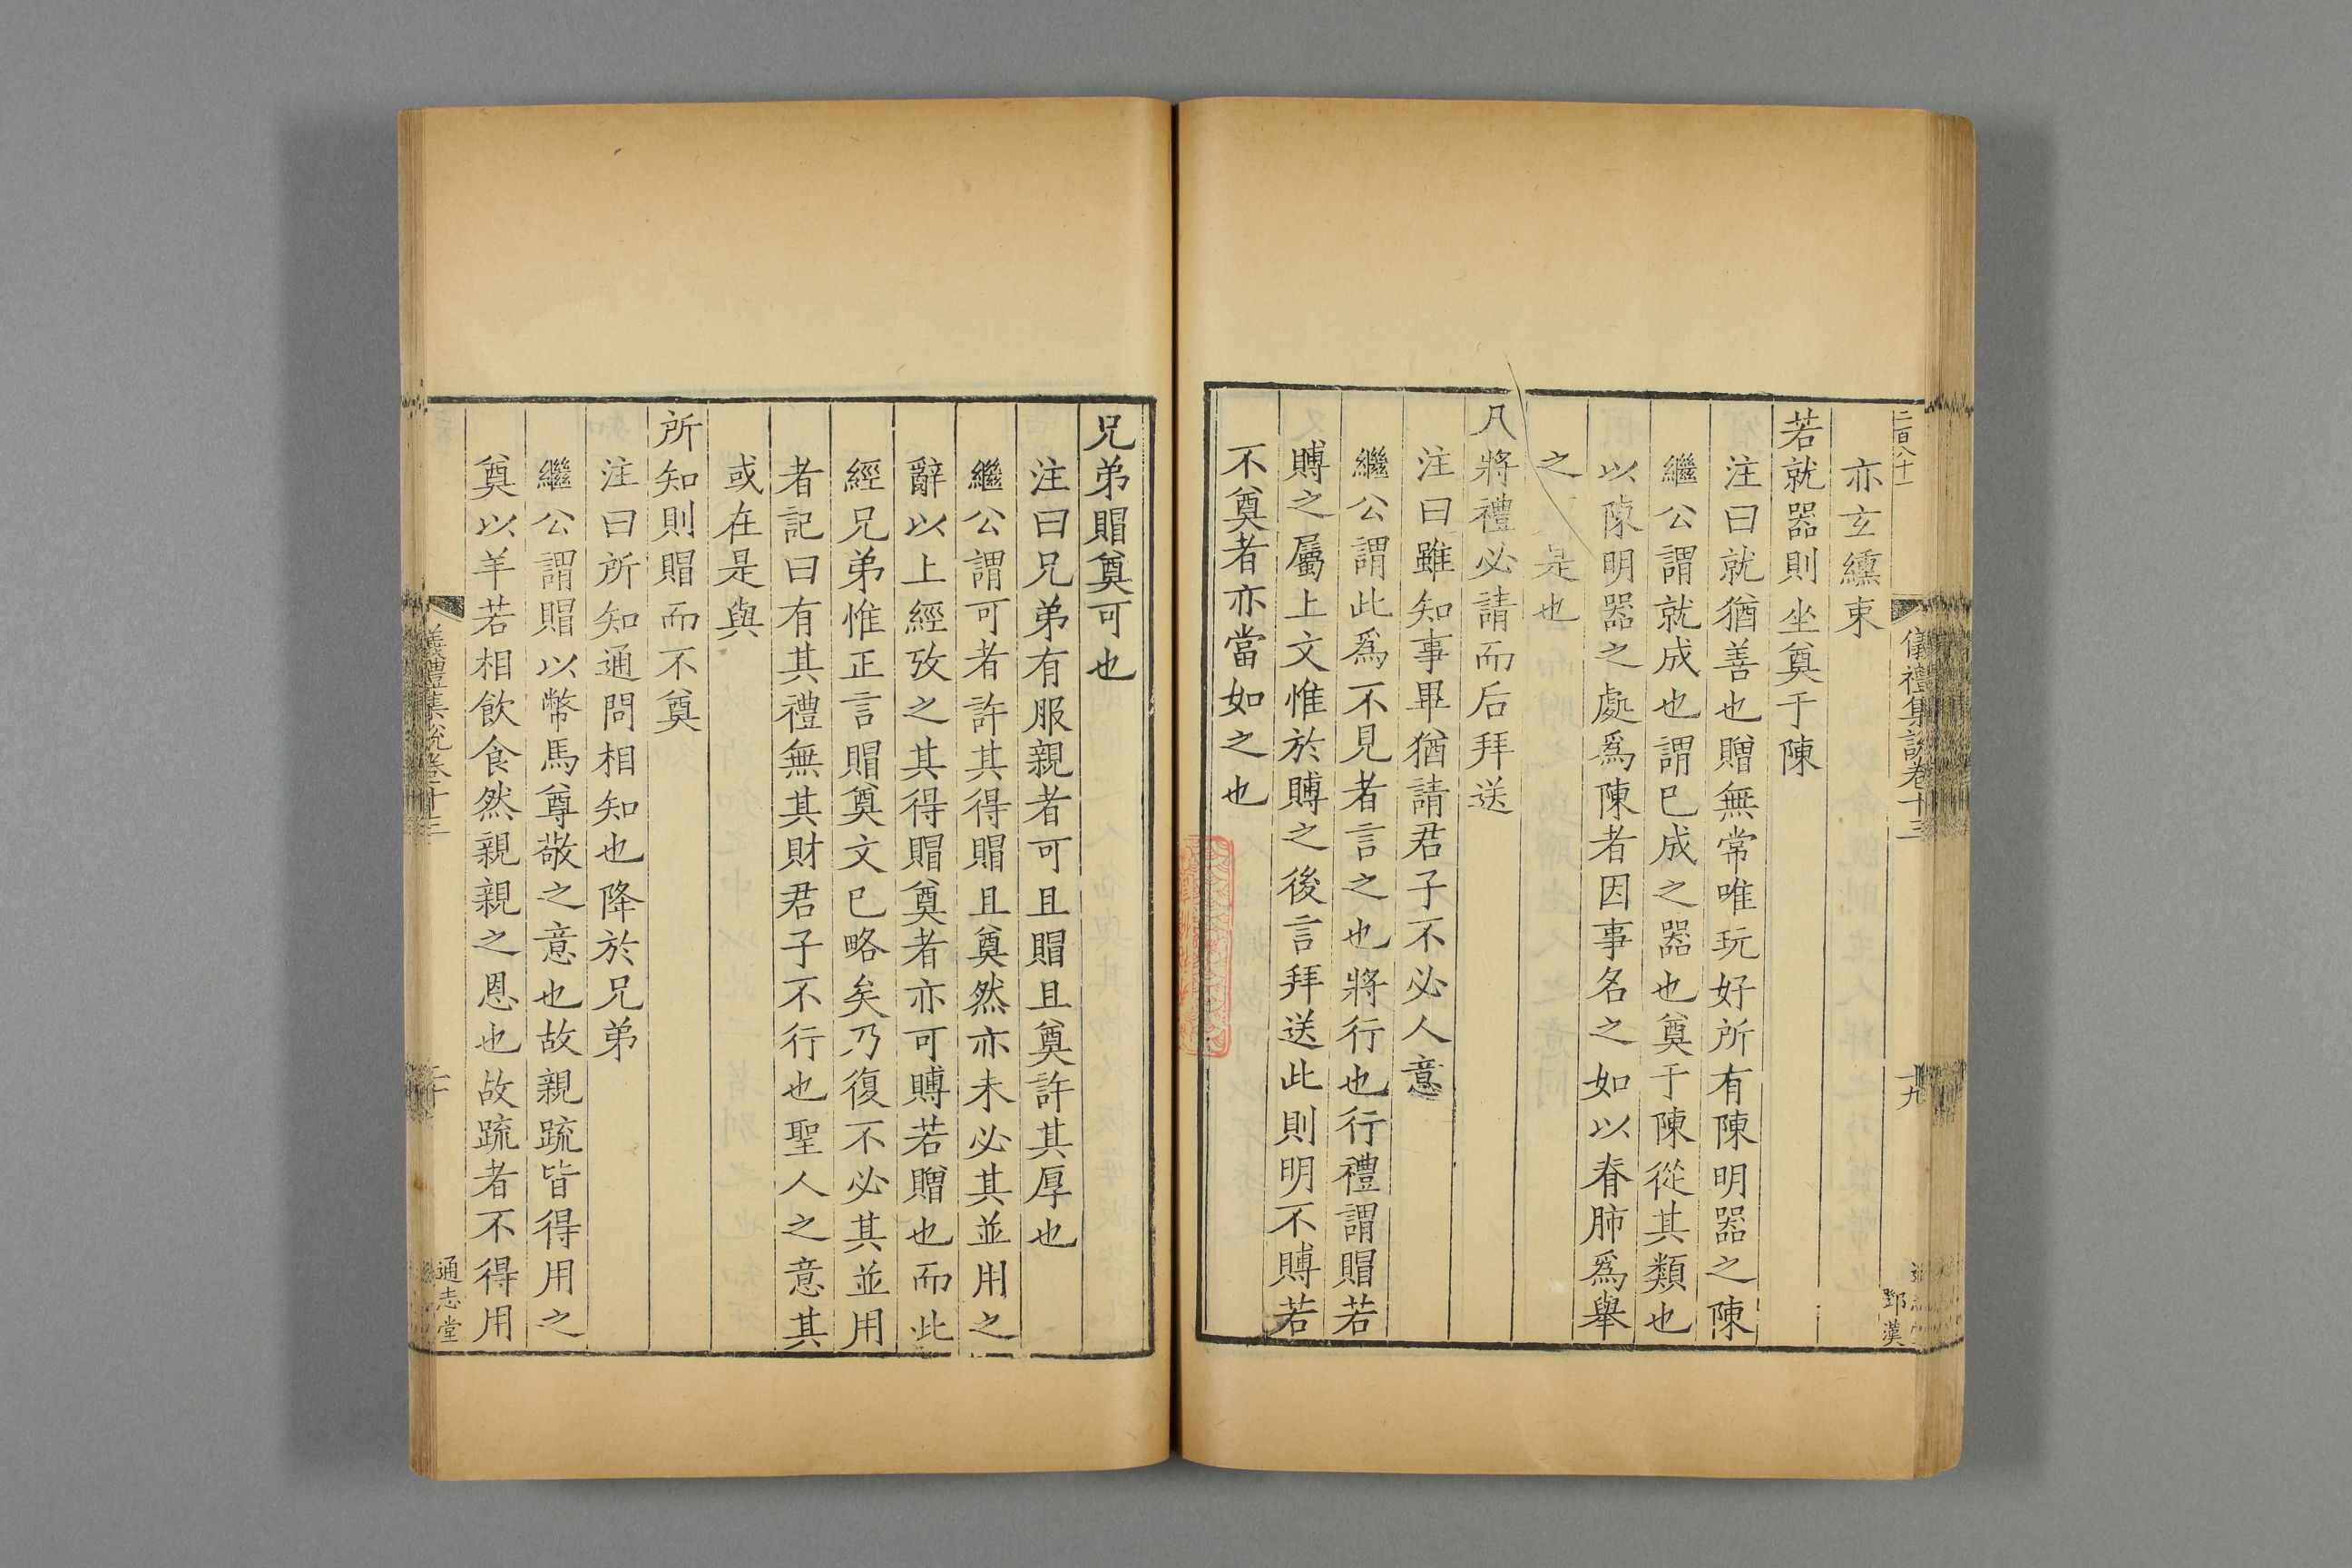 二百八十一
儀禮集說卷十三
十九
鄧漢
亦玄纁束
若就器則坐奠于陳
注曰就猶善也贈無常唯玩好所有陳明器之陳
繼公謂就成也謂已成之器也奠于陳從其類也
以陳明器之處爲陳者因事名之如以脊肺爲舉
之 是也
凡將禮必請而后拜送
注曰雖知事畢猶請君子不必人意
繼公謂此爲不見者言之也將行也行禮謂賵若
賻之屬上文惟於賻之後言拜送此則明不賻若
不奠者亦當如之也
兄弟賵奠可也
注曰兄弟有服親者可且賵且奠許其厚也
繼公謂可者許其得賵且奠然亦未必其並用之
辭以上經攷之其得賵奠者亦可賻若贈也而此
經兄弟惟正言賵奠文已略矣乃復不必其並用
者記曰有其禮無其財君子不行也聖人之意其
或在是與
所知則賵而不奠
注曰所知通問相知也降於兄弟
繼公謂賵以幣馬尊敬之意也故親疏皆得用之
奠以羊若相飲食然親親之恩也故疏者不得用
儀禮集說卷十三
二十
通志堂